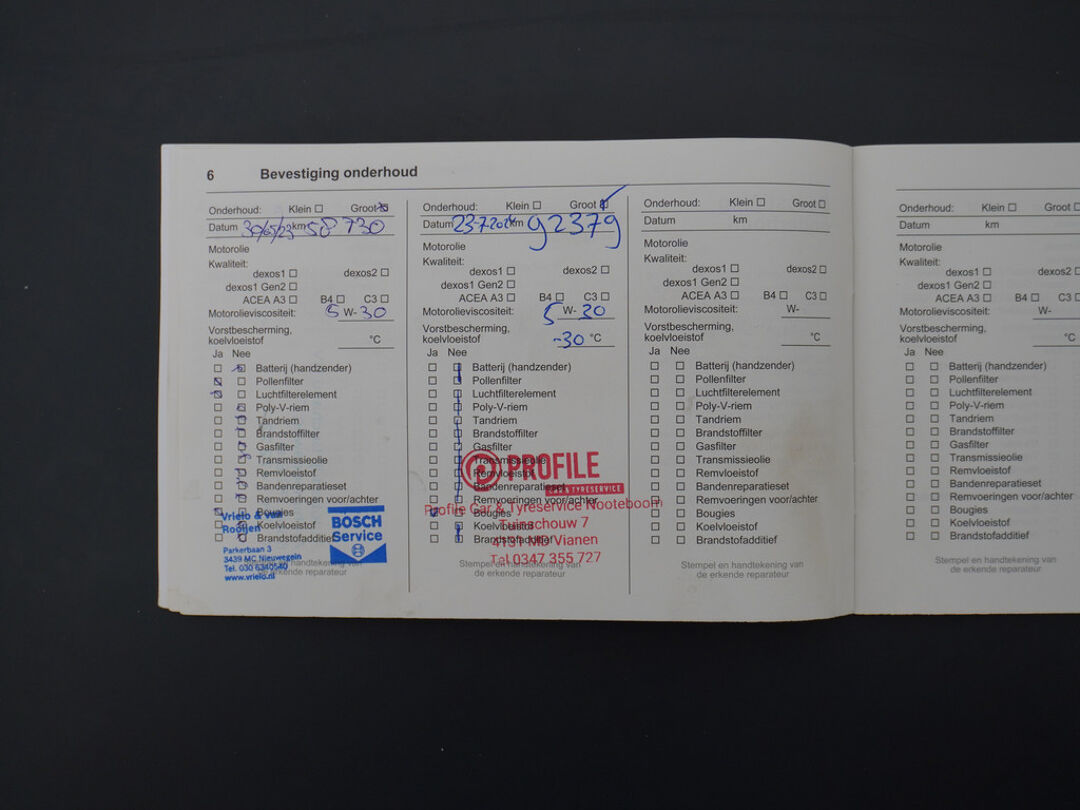 6 Bevestiging onderhoud
Onderhoud: Klein ☐ Groot ☒
Datum 30/05/23 km 58730
Motorolie
Kwaliteit:
dexos1 ☐ dexos2 ☐
dexos1 Gen2 ☐
ACEA A3 ☐ B4 ☐ C3 ☐
Motorolieviscositeit: 5 W- 30
Vorstbescherming,
koelvloeistof °C
Ja Nee
Batterij (handzender)
Pollenfilter
Luchtfilterelement
Poly-V-riem
Tandriem
Brandstoffilter
Gasfilter
Transmissieolie
Remvloeistof
Bandenreparatieset
Remvoeringen voor/achter
Bougies
Koelvloeistof
Brandstofadditief
Vrielo & van
Rooijen
Parkerbaan 3
3439 MC Nieuwegein
Tel. 030 6340540
www.vrielo.nl
BOSCH
Service
de erkende reparateur
Onderhoud: Klein ☐ Groot ☒
Datum 23-7-2024 km 92379
Motorolie
Kwaliteit:
dexos1 ☐ dexos2 ☐
dexos1 Gen2 ☐
ACEA A3 ☐ B4 ☐ C3 ☐
Motorolieviscositeit: 5 W- 30
Vorstbescherming,
koelvloeistof -30 °C
Ja Nee
Batterij (handzender)
Pollenfilter
Luchtfilterelement
Poly-V-riem
Tandriem
Brandstoffilter
Gasfilter
Transmissieolie
Remvloeistof
Bandenreparatieset
Remvoeringen voor/achter
Bougies
Koelvloeistof
Brandstofadditief
PROFILE
CAR & TYRESERVICE
Profile Car & Tyreservice Nooteboom
Tuinschouw 7
4131 MD Vianen
Tel.0347 355 727
Stempel en handtekening van
de erkende reparateur
Onderhoud: Klein ☐ Groot ☐
Datum km
Motorolie
Kwaliteit:
dexos1 ☐ dexos2 ☐
dexos1 Gen2 ☐
ACEA A3 ☐ B4 ☐ C3 ☐
Motorolieviscositeit: W-
Vorstbescherming,
koelvloeistof °C
Ja Nee
☐ ☐ Batterij (handzender)
☐ ☐ Pollenfilter
☐ ☐ Luchtfilterelement
☐ ☐ Poly-V-riem
☐ ☐ Tandriem
☐ ☐ Brandstoffilter
☐ ☐ Gasfilter
☐ ☐ Transmissieolie
☐ ☐ Remvloeistof
☐ ☐ Bandenreparatieset
☐ ☐ Remvoeringen voor/achter
☐ ☐ Bougies
☐ ☐ Koelvloeistof
☐ ☐ Brandstofadditief
Stempel en handtekening van
de erkende reparateur
Onderhoud: Klein ☐ Groot ☐
Datum km
Motorolie
Kwaliteit:
dexos1 ☐ dexos2
dexos1 Gen2 ☐
ACEA A3 ☐ B4 ☐ C3 ☐
Motorolieviscositeit: W-
Vorstbescherming,
koelvloeistof °C
Ja Nee
☐ ☐ Batterij (handzender)
☐ ☐ Pollenfilter
☐ ☐ Luchtfilterelement
☐ ☐ Poly-V-riem
☐ ☐ Tandriem
☐ ☐ Brandstoffilter
☐ ☐ Gasfilter
☐ ☐ Transmissieolie
☐ ☐ Remvloeistof
☐ ☐ Bandenreparatieset
☐ ☐ Remvoeringen voor/achter
☐ ☐ Bougies
☐ ☐ Koelvloeistof
☐ ☐ Brandstofadditief
Stempel en handtekening van
de erkende reparateur